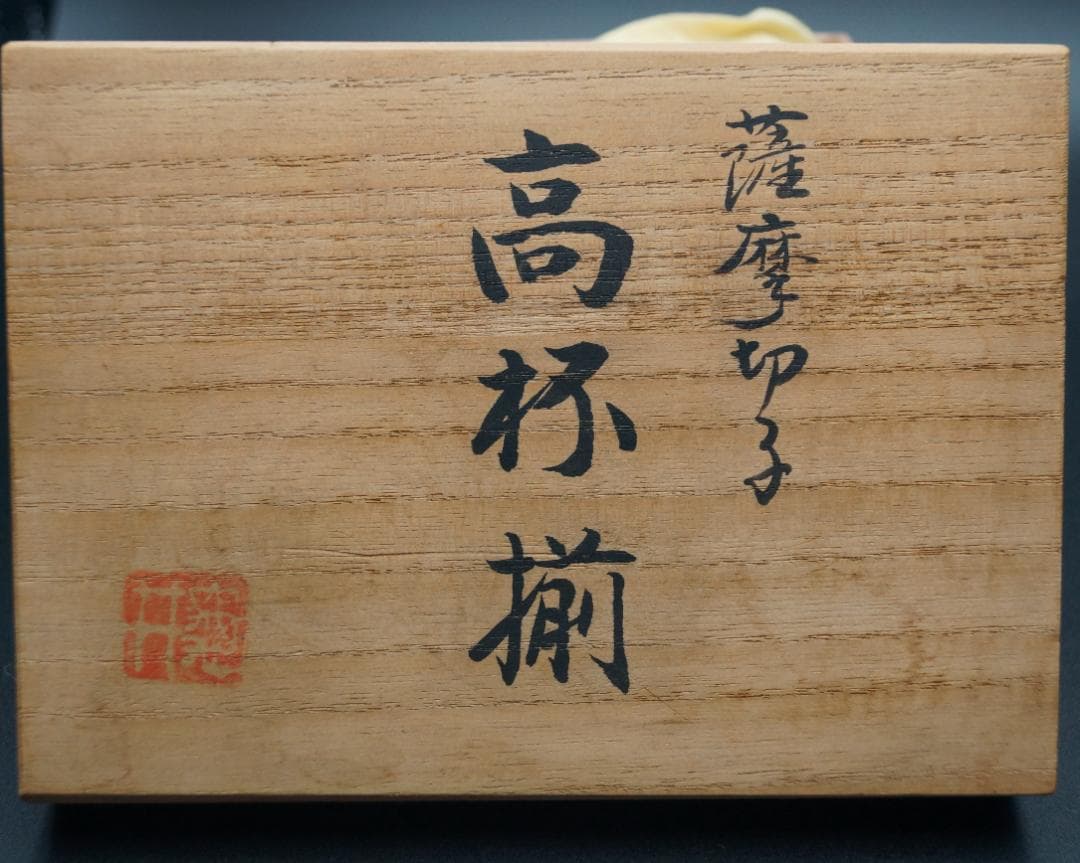 薩摩切子
高杯揃